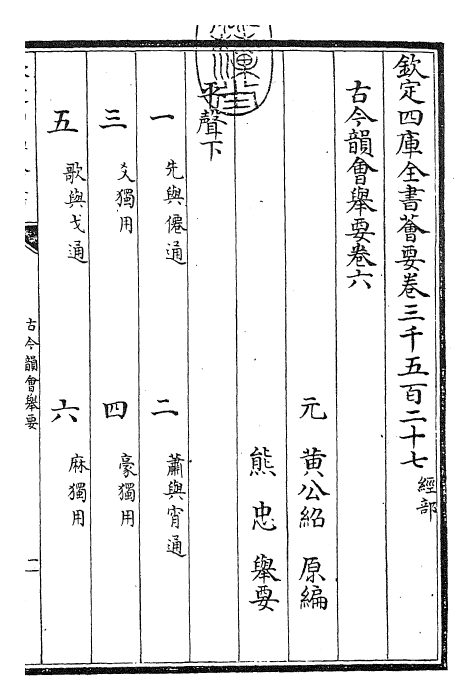 欽定四庫全書薈要卷三千五百二十七 經部
古今韻會舉要卷六
元 黄公紹 原編
熊忠 舉要
平聲下
一 先與僊通
二 蕭與宵通
三 爻獨用
四 豪獨用
五 歌與戈通
六 麻獨用
古今韻會舉要
一